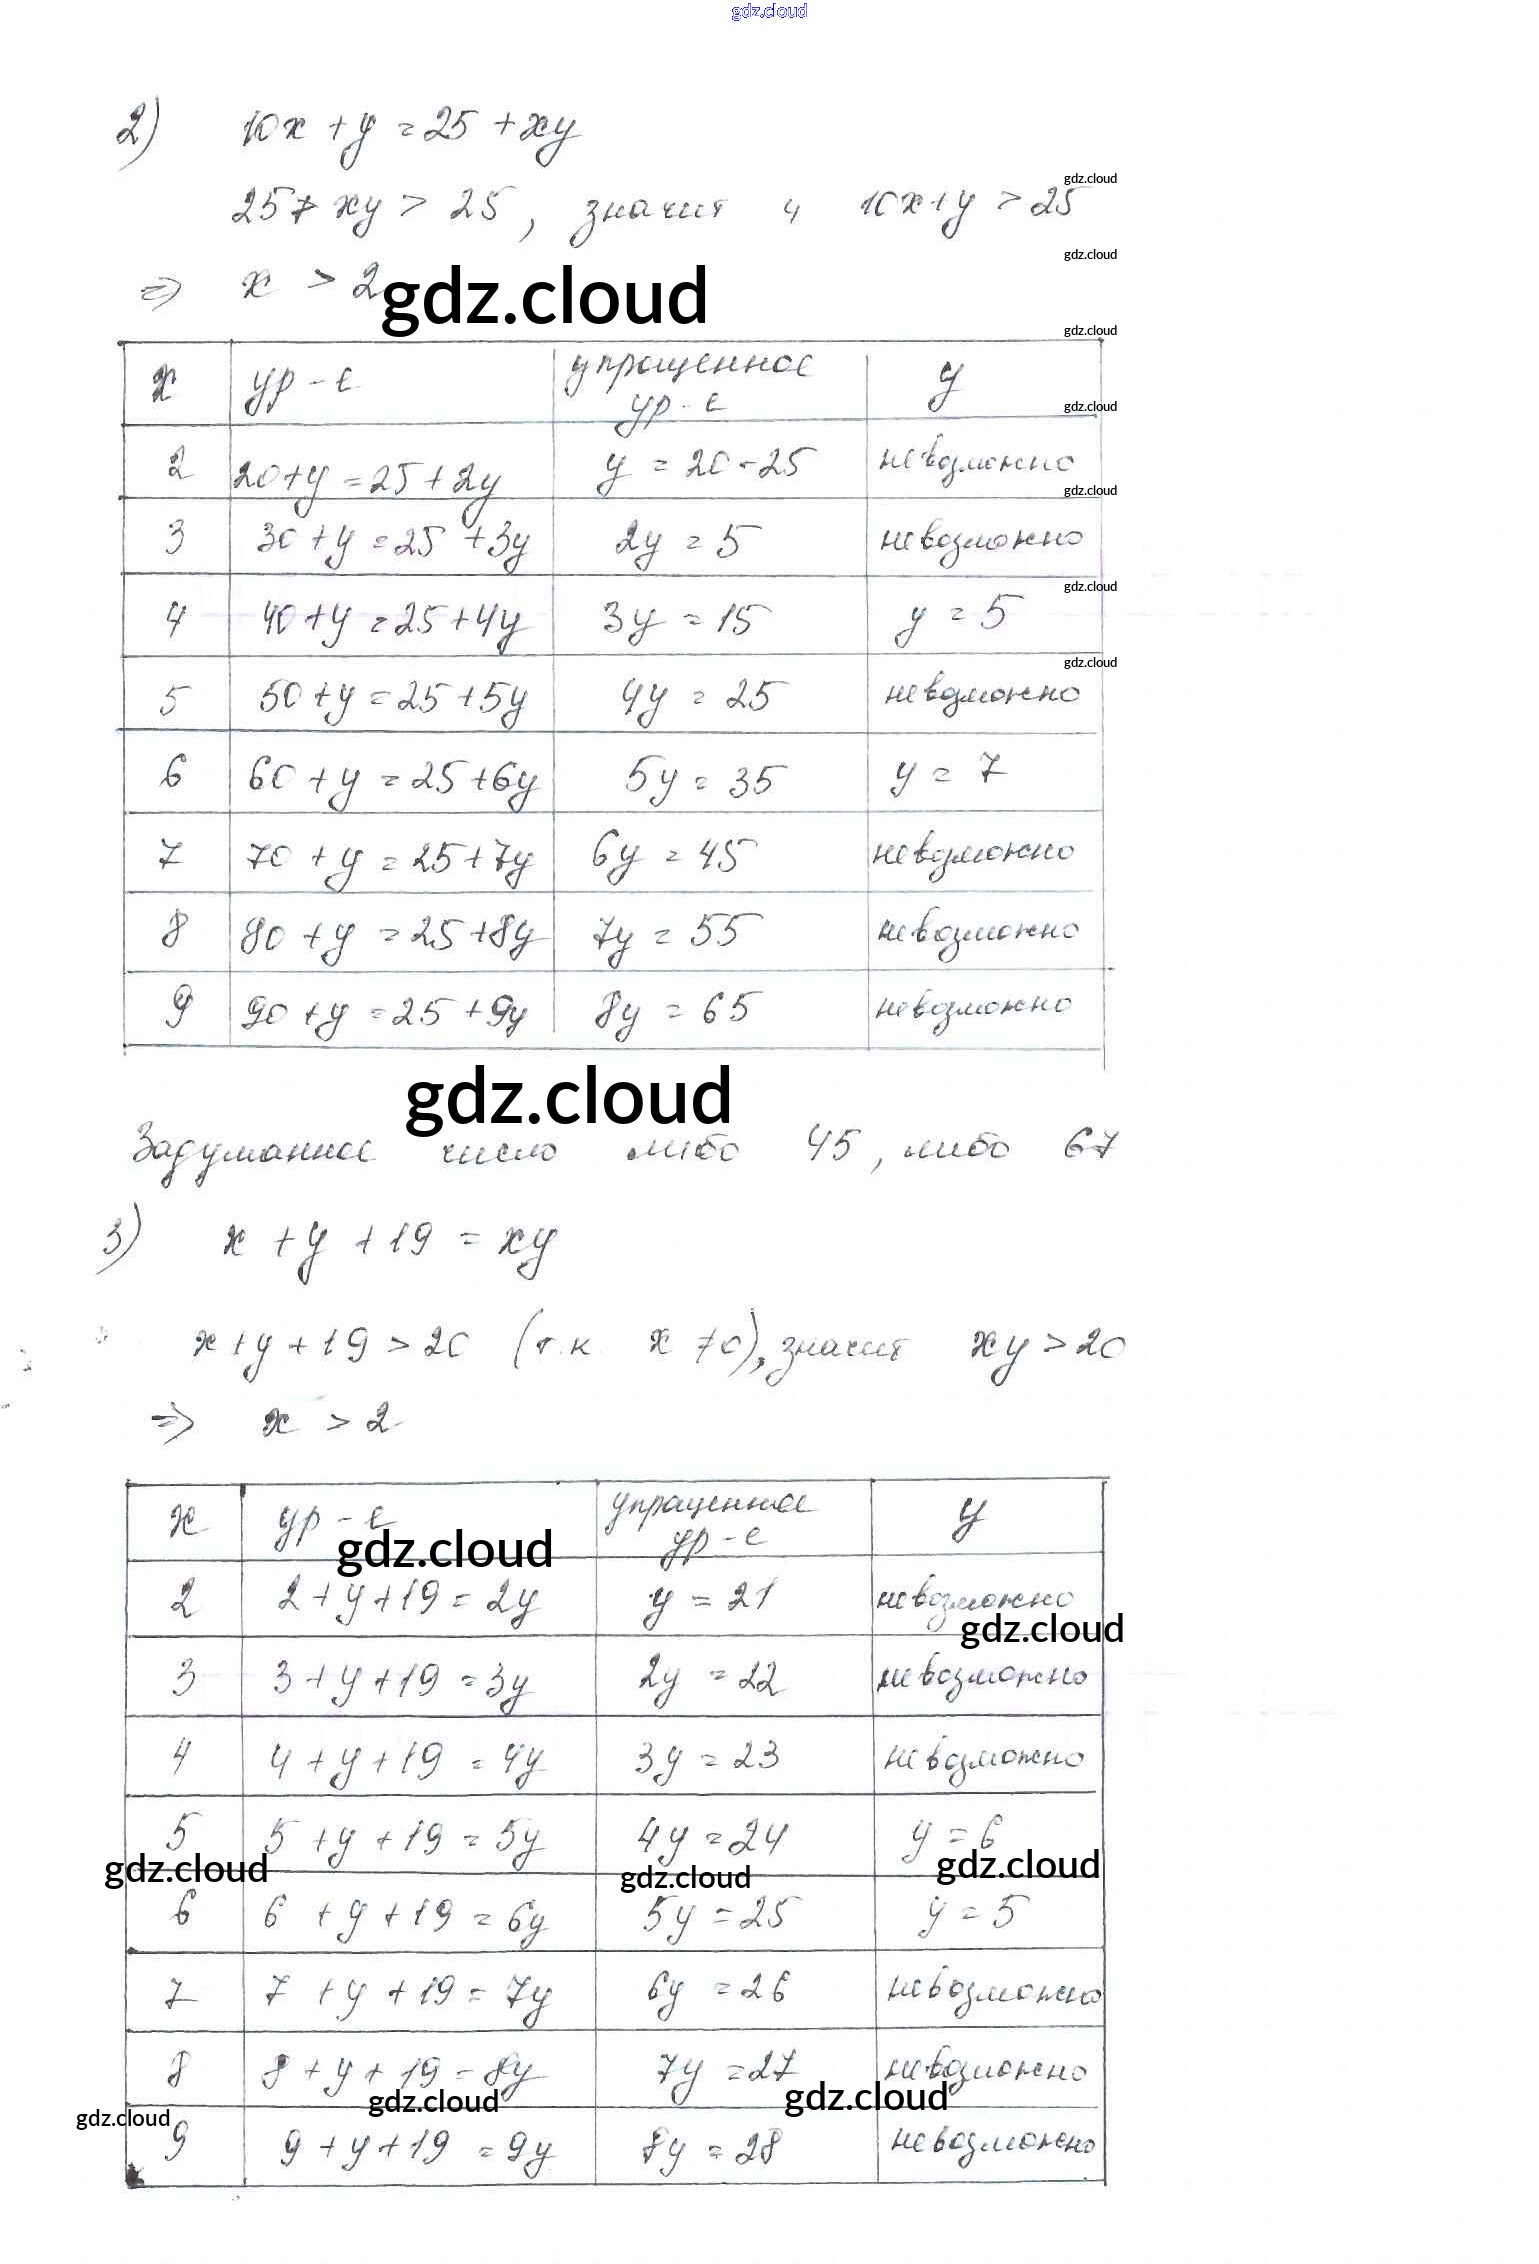 gdz.cloud
2) 10x + y = 25 + xy
25 + xy > 25, значит и 10x+y > 25
gdz.cloud
gdz.cloud
⇒ x > 2
gdz.cloud
gdz.cloud
x ур-е упрощенное ур-е y
gdz.cloud
2 20+y = 25+2y y = 20-25 невозможно
gdz.cloud
3 30+y = 25+3y 2y = 5 невозможно
gdz.cloud
4 40+y = 25+4y 3y = 15 y = 5
gdz.cloud
5 50+y = 25+5y 4y = 25 невозможно
6 60+y = 25+6y 5y = 35 y = 7
7 70+y = 25+7y 6y = 45 невозможно
8 80+y = 25+8y 7y = 55 невозможно
9 90+y = 25+9y 8y = 65 невозможно
gdz.cloud
Задуманное число либо 45, либо 67
3) x + y + 19 = xy
x+y+19 > 20 (т.к. x ≠ 0), значит xy > 20
⇒ x > 2
x ур-е упрощенное ур-е y
gdz.cloud
2 2+y+19 = 2y y = 21 невозможно
gdz.cloud
3 3+y+19 = 3y 2y = 22 невозможно
4 4+y+19 = 4y 3y = 23 невозможно
5 5+y+19 = 5y 4y = 24 y = 6
gdz.cloud gdz.cloud gdz.cloud
6 6+y+19 = 6y 5y = 25 y = 5
7 7+y+19 = 7y 6y = 26 невозможно
8 8+y+19 = 8y 7y = 27 невозможно
gdz.cloud gdz.cloud gdz.cloud
9 9+y+19 = 9y 8y = 28 невозможно